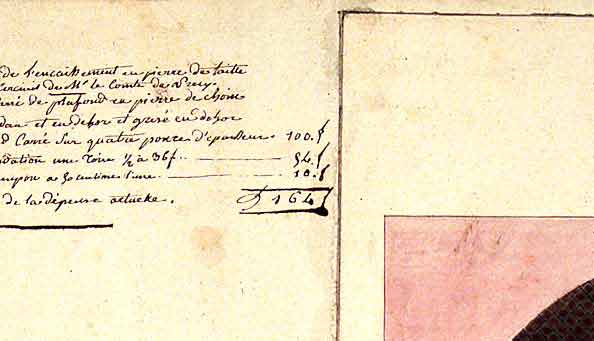 de l'encaissement en pierre de taille
circuit de Mr. le Comte de
carré de plafond en pierre de choin
dedans et en dehor et gresé en dehor
d Carré Sur quatre pouce d'épaisseur. 100.f
dation une Toise 1/2 à 36f. 54.f
a 50 centime l'une. 10.f
de la dépense actuele. 164f